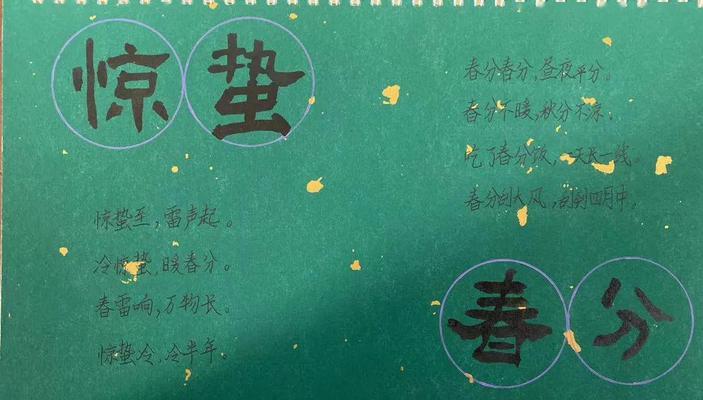 惊蛰
惊蛰至,雷声起。
冷惊蛰,暖春分。
春雷响,万物长。
惊蛰冷,冷半年。
春分春分,昼夜平分。
春分不暖,秋分不凉。
吃了春分饭,一天长一线。
春分刮大风,刮到四月中。
春分